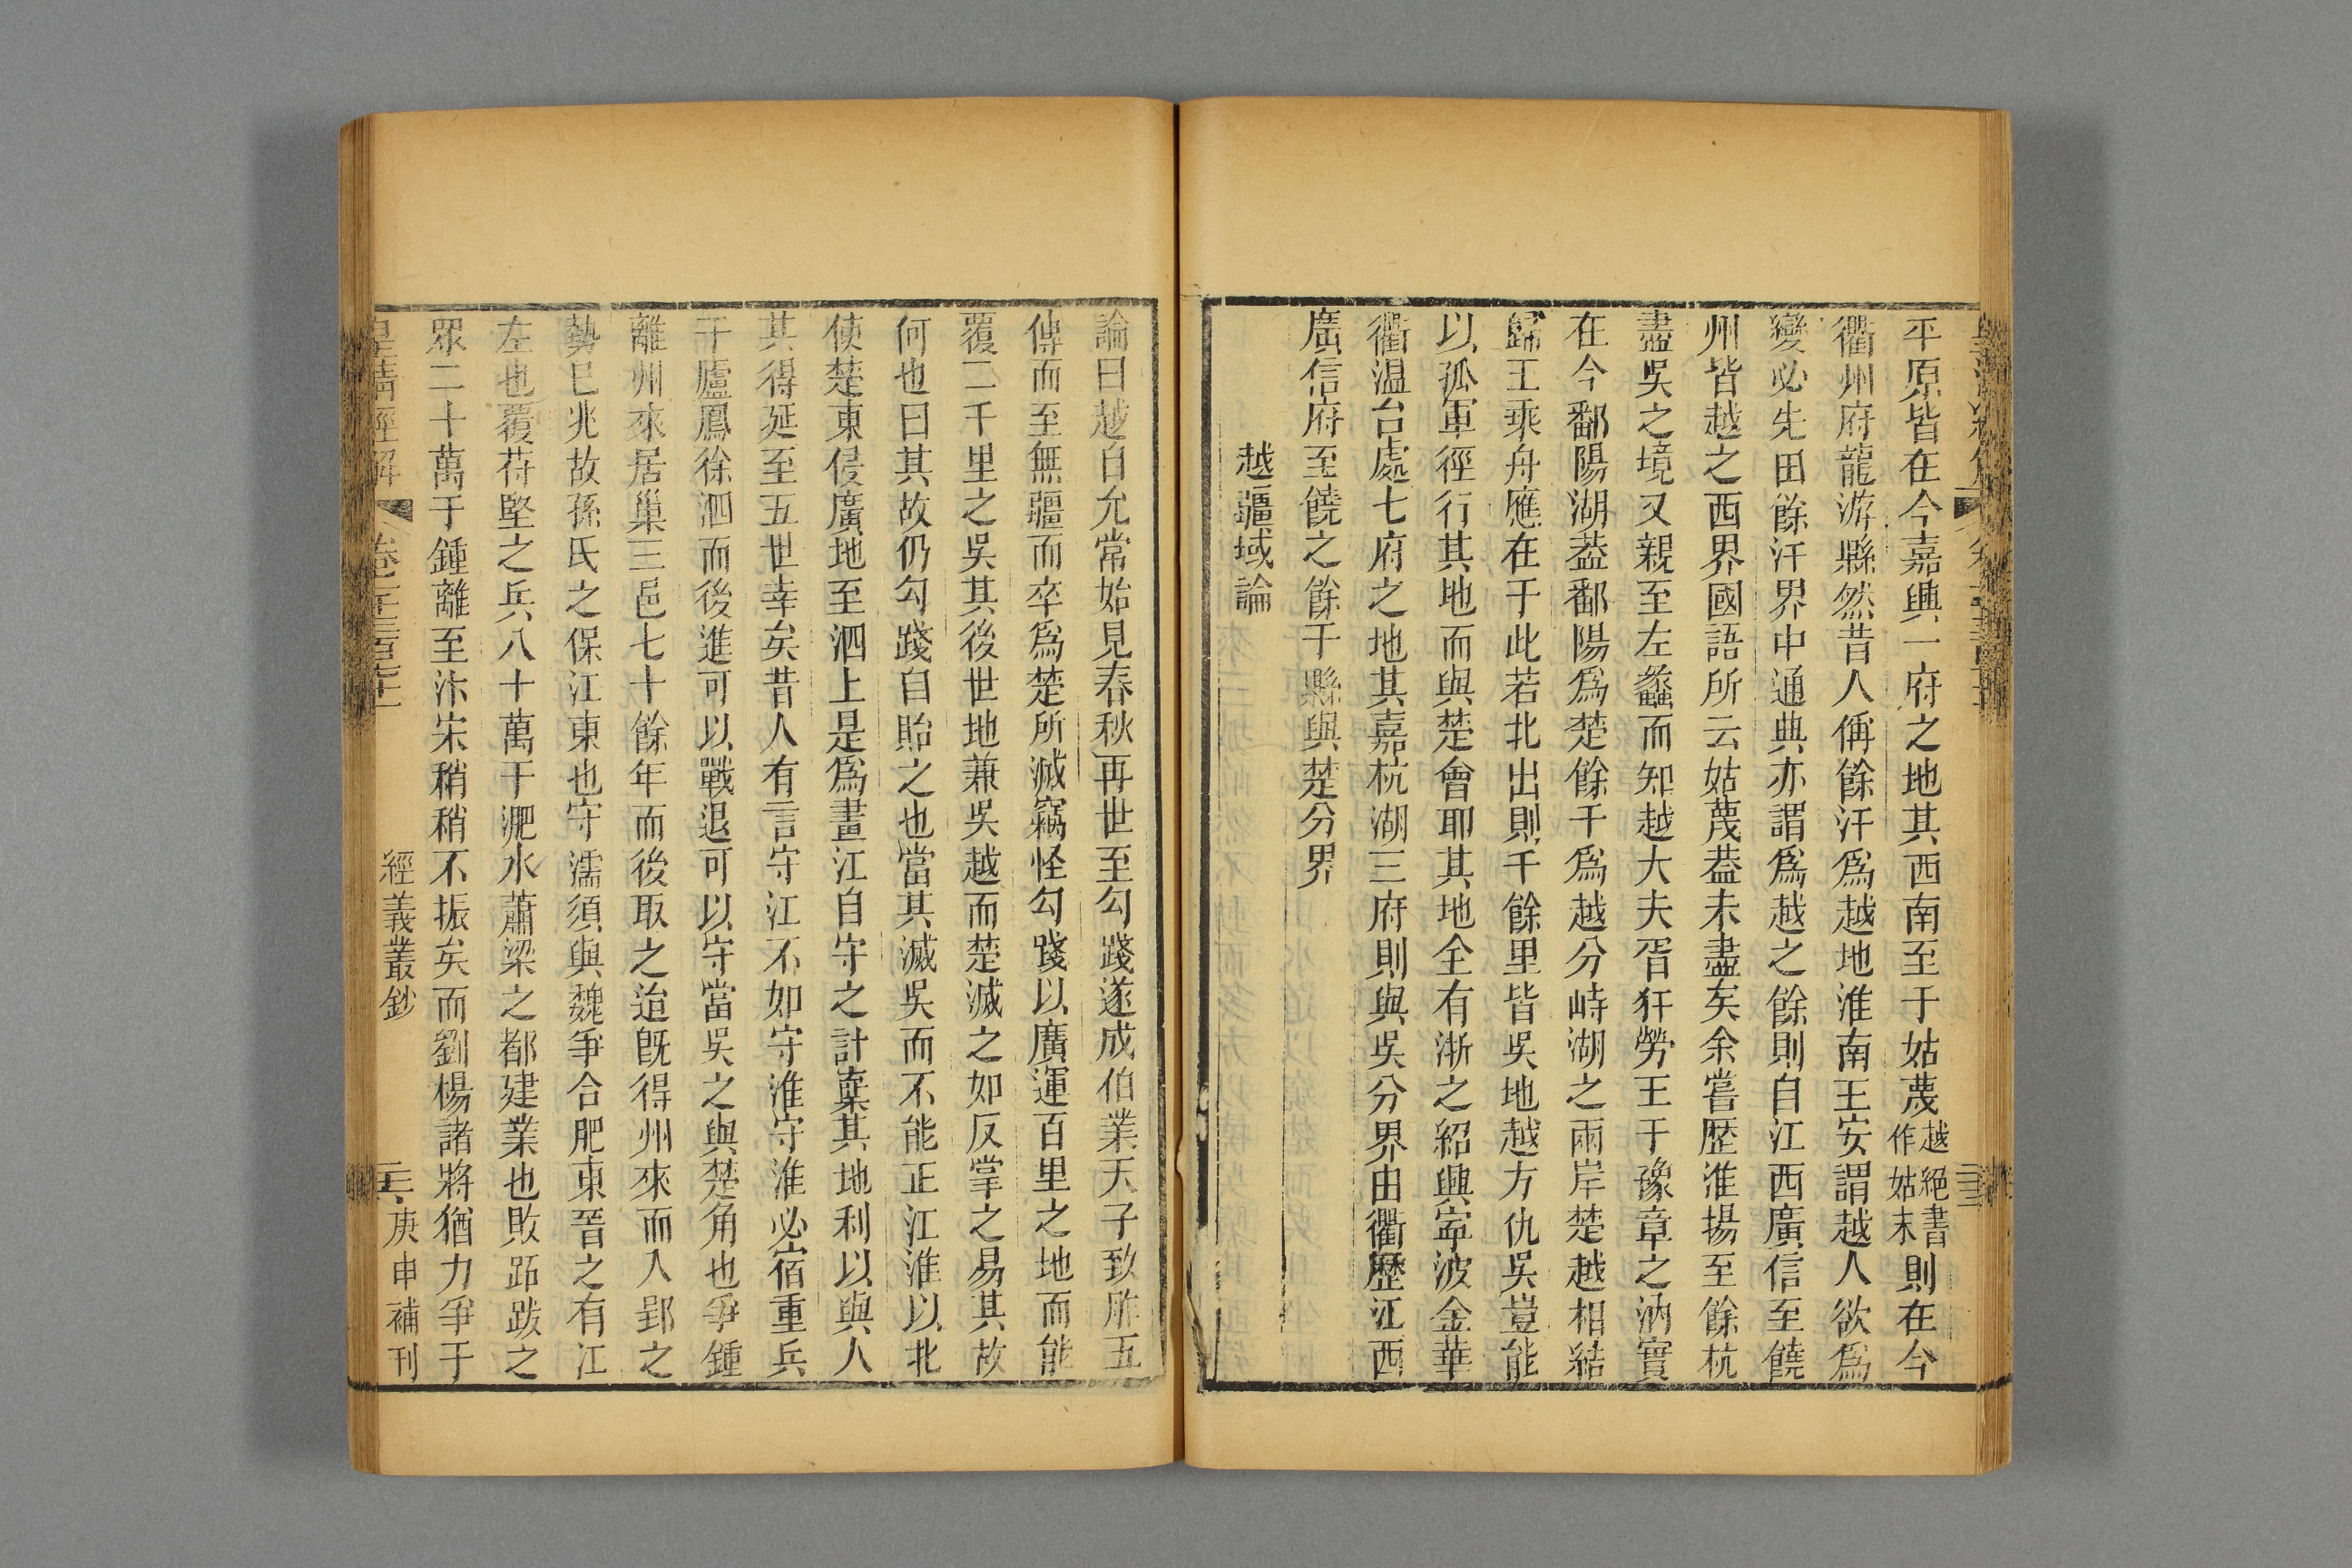 平原皆在今嘉興一府之地其西南至于姑蔑越絕書作姑末則在今
衢州府龍游縣然昔人偁餘汗爲越地淮南王安謂越人欲爲
變必先田餘汗界中通典亦謂爲越之餘則自江西廣信至饒
州皆越之西界國語所云姑蔑葢未盡矣余嘗歷淮揚至餘杭
盡吳之境又親至左蠡而知越大夫胥犴勞王于豫章之汭實
在今鄱陽湖葢鄱陽爲楚餘干爲越分峙湖之兩岸楚越相結
歸王乘舟應在于此若北出則千餘里皆吳地越方仇吳豈能
以孤軍徑行其地而與楚會耶其地全有浙之紹興寧波金華
衢温台處七府之地其嘉杭湖三府則與吳分界由衢歷江西
廣信府至饒之餘干縣與楚分界
越疆域論
論曰越自允常始見春秋再世至勾踐遂成伯業天子致胙五
傳而至無疆而卒爲楚所滅竊怪勾踐以廣運百里之地而能
覆二千里之吳其後世地兼吳越而楚滅之如反掌之易其故
何也曰其故仍勾踐自貽之也當其滅吳而不能正江淮以北
使楚東侵廣地至泗上是爲畫江自守之計棄其地利以與人
其得延至五世幸矣昔人有言守江不如守淮守淮必宿重兵
于廬鳳徐泗而後進可以戰退可以守當吳之與楚角也爭鍾
離州來居巢三邑七十餘年而後取之迨旣得州來而入郢之
勢已兆故孫氏之保江東也守濡須與魏爭合肥東晉之有江
左也覆苻堅之兵八十萬于淝水蕭梁之都建業也敗跖跋之
眾二十萬于鍾離至汴宋稍稍不振矣而劉楊諸將猶力爭于
皇清經解 經義叢鈔 庚申補刊